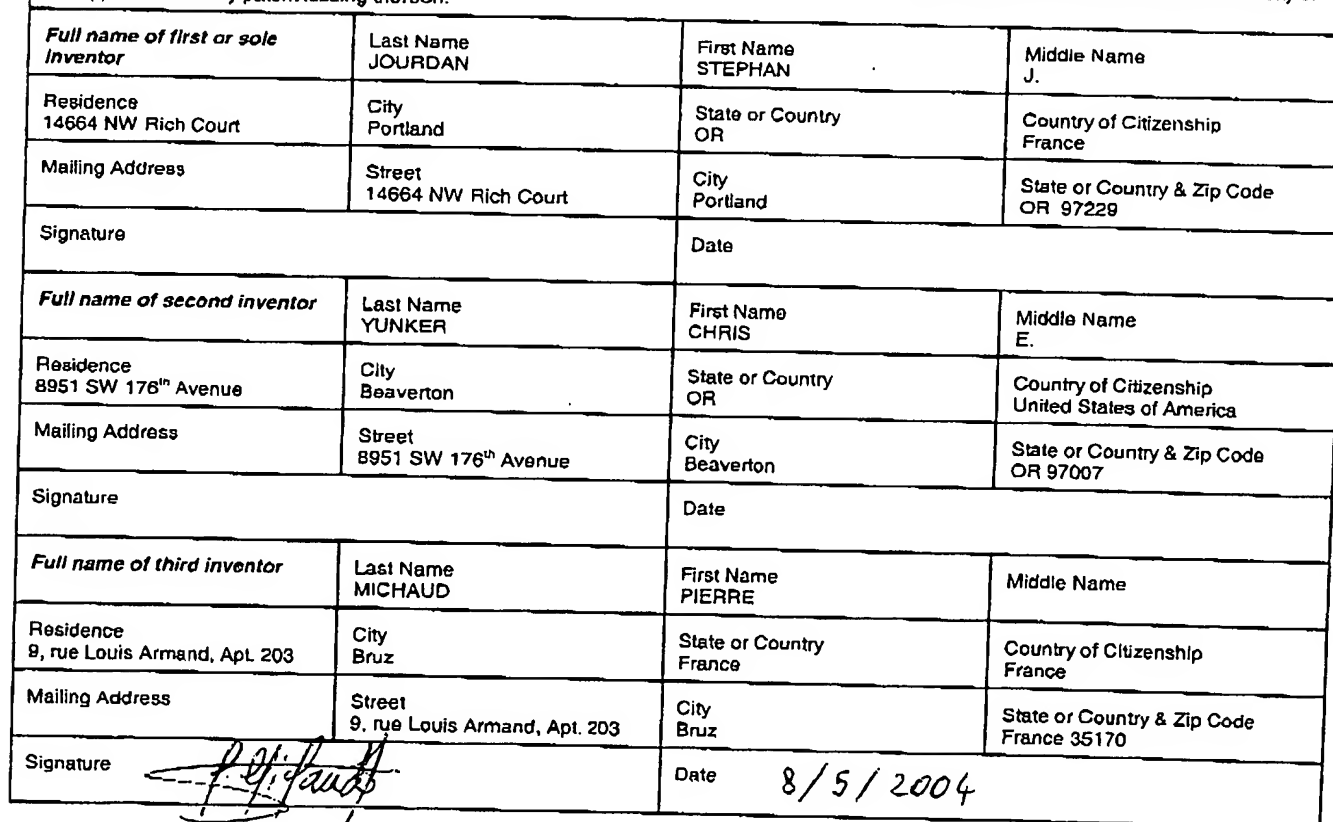 Full name of first or sole inventor
Last Name
JOURDAN
First Name
STEPHAN
Middle Name
J.
Residence
14664 NW Rich Court
City
Portland
State or Country
OR
Country of Citizenship
France
Mailing Address
Street
14664 NW Rich Court
City
Portland
State or Country & Zip Code
OR 97229
Signature
Date
Full name of second inventor
Last Name
YUNKER
First Name
CHRIS
Middle Name
E.
Residence
8951 SW 176th Avenue
City
Beaverton
State or Country
OR
Country of Citizenship
United States of America
Mailing Address
Street
8951 SW 176th Avenue
City
Beaverton
State or Country & Zip Code
OR 97007
Signature
Date
Full name of third inventor
Last Name
MICHAUD
First Name
PIERRE
Middle Name
Residence
9, rue Louis Armand, Apt. 203
City
Bruz
State or Country
France
Country of Citizenship
France
Mailing Address
Street
9, rue Louis Armand, Apt. 203
City
Bruz
State or Country & Zip Code
France 35170
Signature
Date 8/5/2004